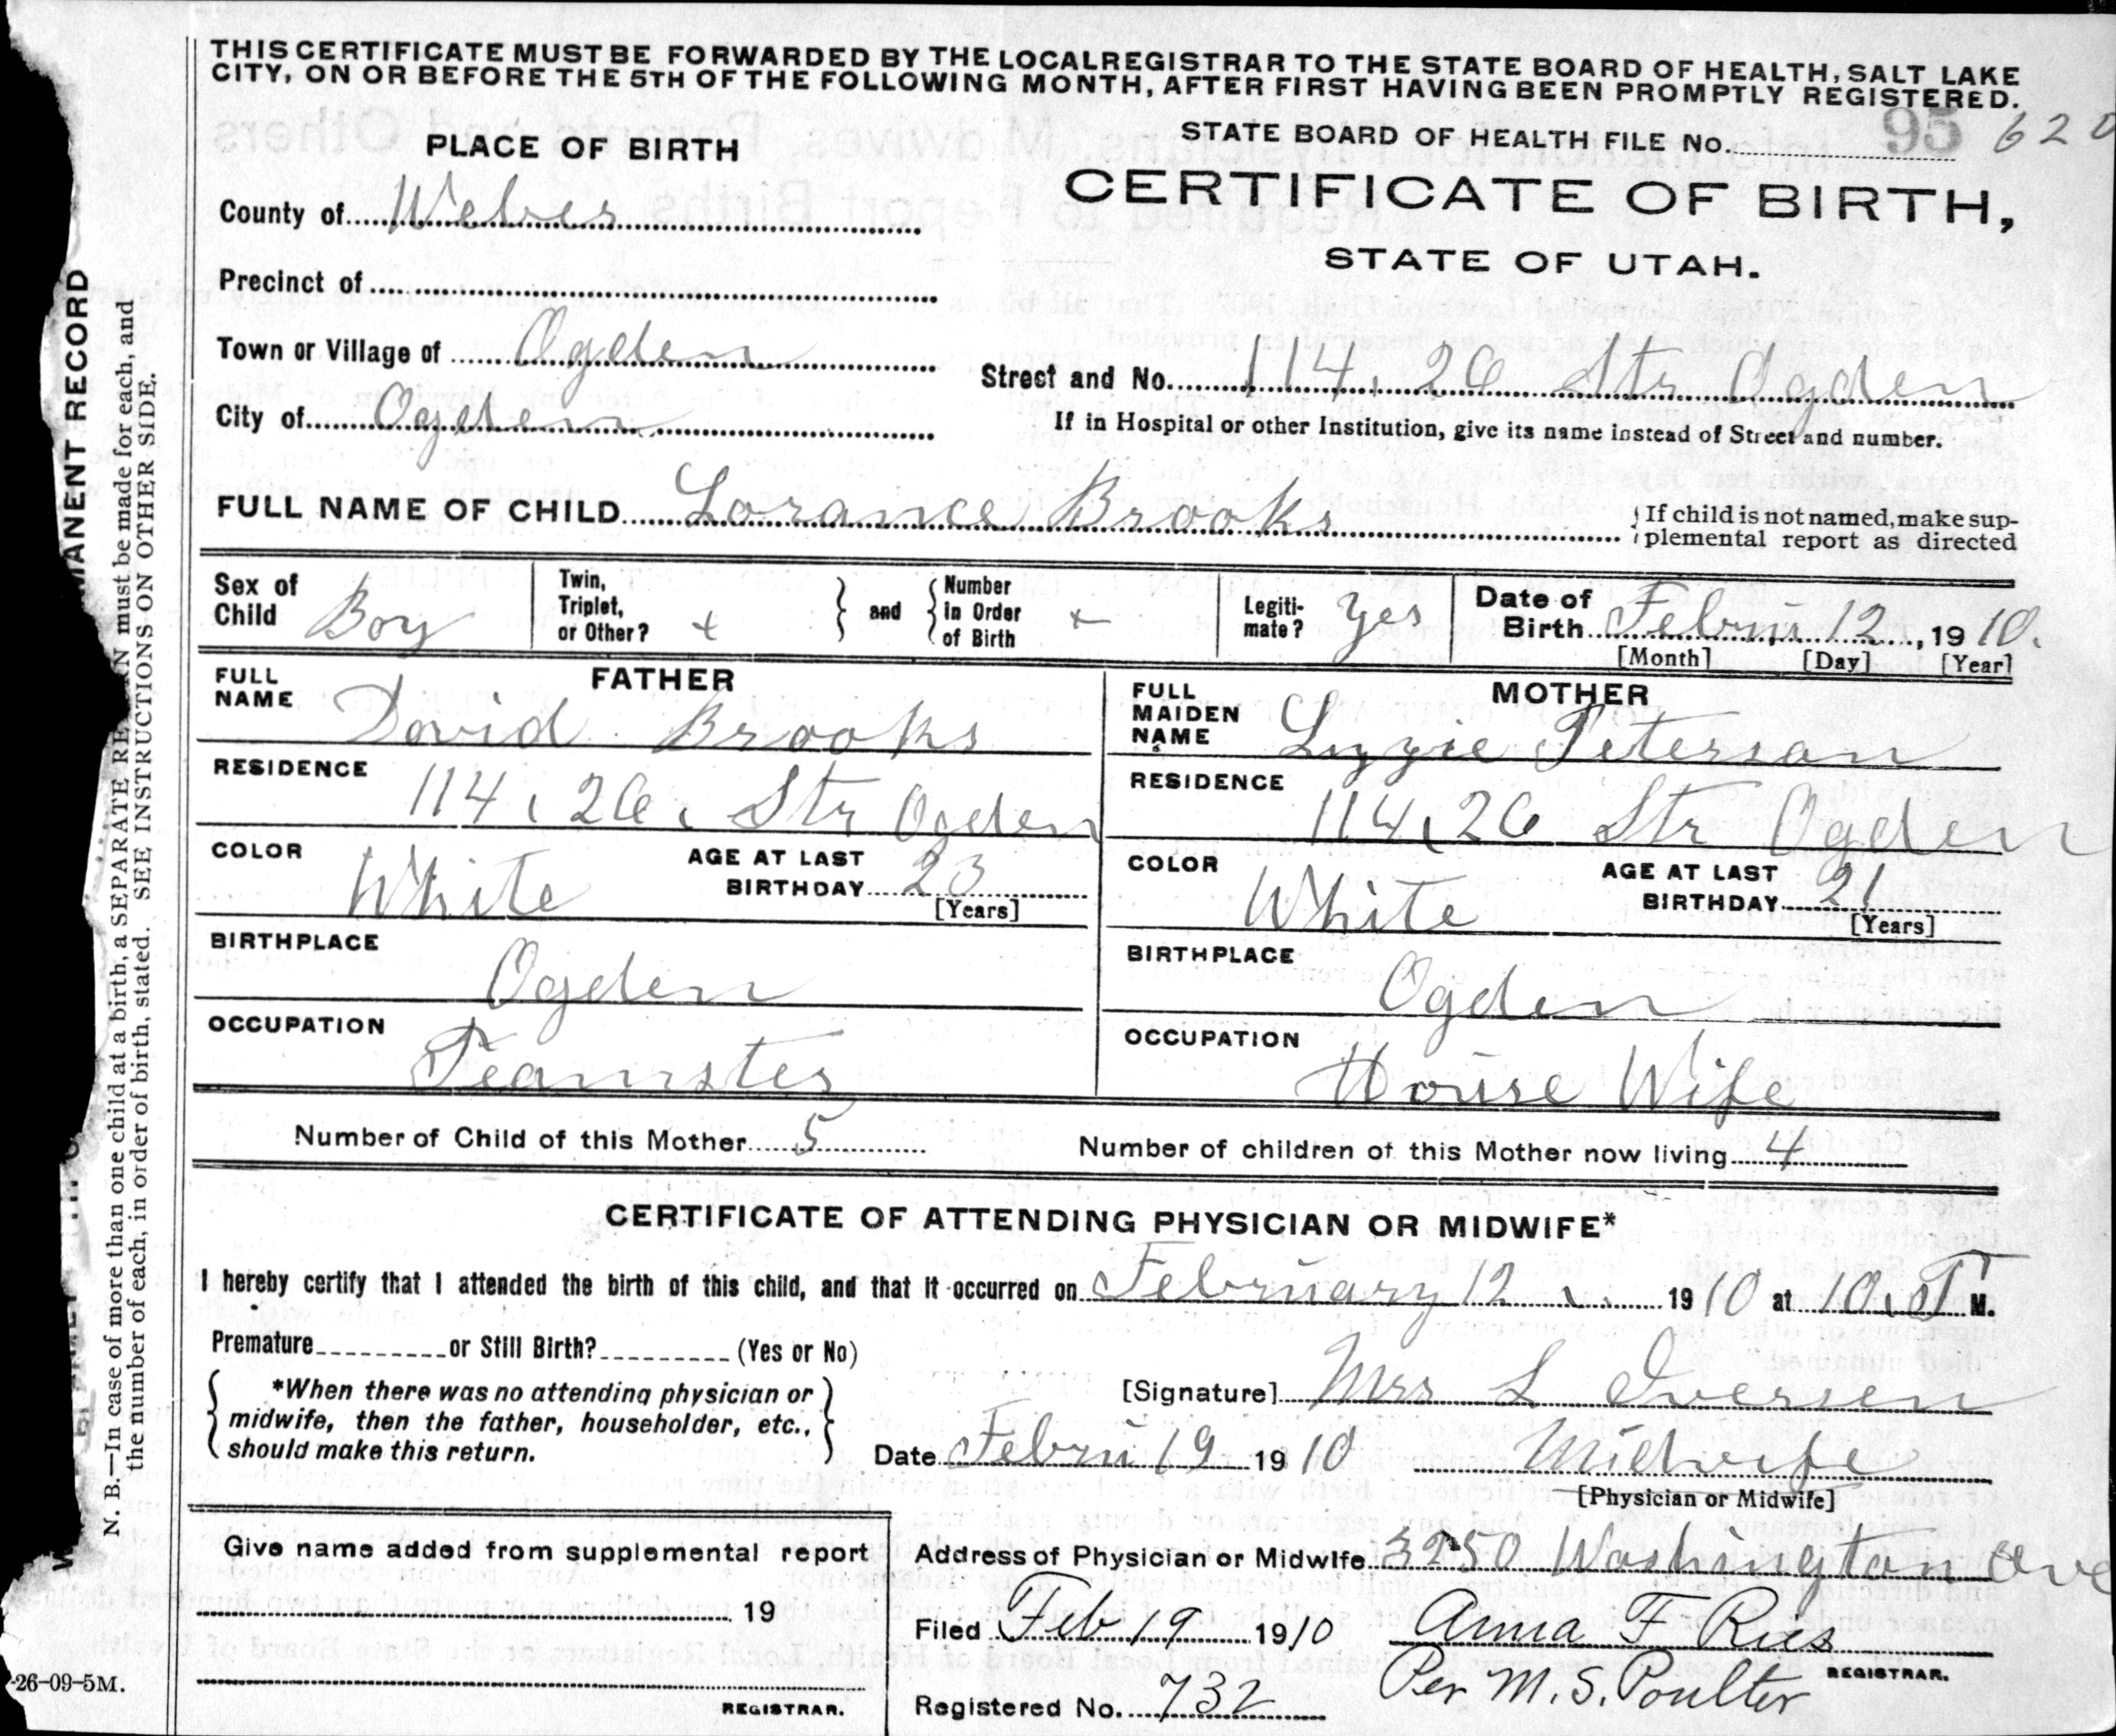 THIS CERTIFICATE MUST BE FORWARDED BY THE LOCAL REGISTRAR TO THE STATE BOARD OF HEALTH, SALT LAKE
CITY, ON OR BEFORE THE 5TH OF THE FOLLOWING MONTH, AFTER FIRST HAVING BEEN PROMPTLY REGISTERED.
STATE BOARD OF HEALTH FILE No. 95 620
PLACE OF BIRTH
CERTIFICATE OF BIRTH,
STATE OF UTAH.
County of Weber
Precinct of
Town or Village of Ogden
Street and No. 114, 26 Str Ogden
City of Ogden
If in Hospital or other Institution, give its name instead of Street and number.
FULL NAME OF CHILD Lorance Brooks
If child is not named, make sup-
plemental report as directed
Sex of Child Boy
Twin, Triplet, or Other? +
and Number in Order of Birth +
Legiti-mate? Yes
Date of Birth Febru 12, 1910.
[Month] [Day] [Year]
FATHER
FULL NAME David Brooks
RESIDENCE 114, 26, Str Ogden
COLOR White
AGE AT LAST BIRTHDAY 23
[Years]
BIRTHPLACE Ogden
OCCUPATION Teamster
MOTHER
FULL MAIDEN NAME Lizzie Peterson
RESIDENCE 114, 26 Str Ogden
COLOR White
AGE AT LAST BIRTHDAY 21
[Years]
BIRTHPLACE Ogden
OCCUPATION House Wife
Number of Child of this Mother 5
Number of children of this Mother now living 4
CERTIFICATE OF ATTENDING PHYSICIAN OR MIDWIFE*
I hereby certify that I attended the birth of this child, and that it occurred on February 12 1910 at 10 M.
Premature or Still Birth? (Yes or No)
*When there was no attending physician or
midwife, then the father, householder, etc.,
should make this return.
[Signature] Mrs L Iversen
Date Febru 19 1910
Midwife
[Physician or Midwife]
Give name added from supplemental report
19
REGISTRAR.
Address of Physician or Midwife 3250 Washington Ave
Filed Feb 19 1910
Anna F Ries
REGISTRAR.
Per M. S. Poulter
Registered No. 732
26-09-5M.
MANENT RECORD
N. B.—In case of more than one child at a birth, a SEPARATE must be made for each, and
the number of each, in order of birth, stated. SEE INSTRUCTIONS ON OTHER SIDE.